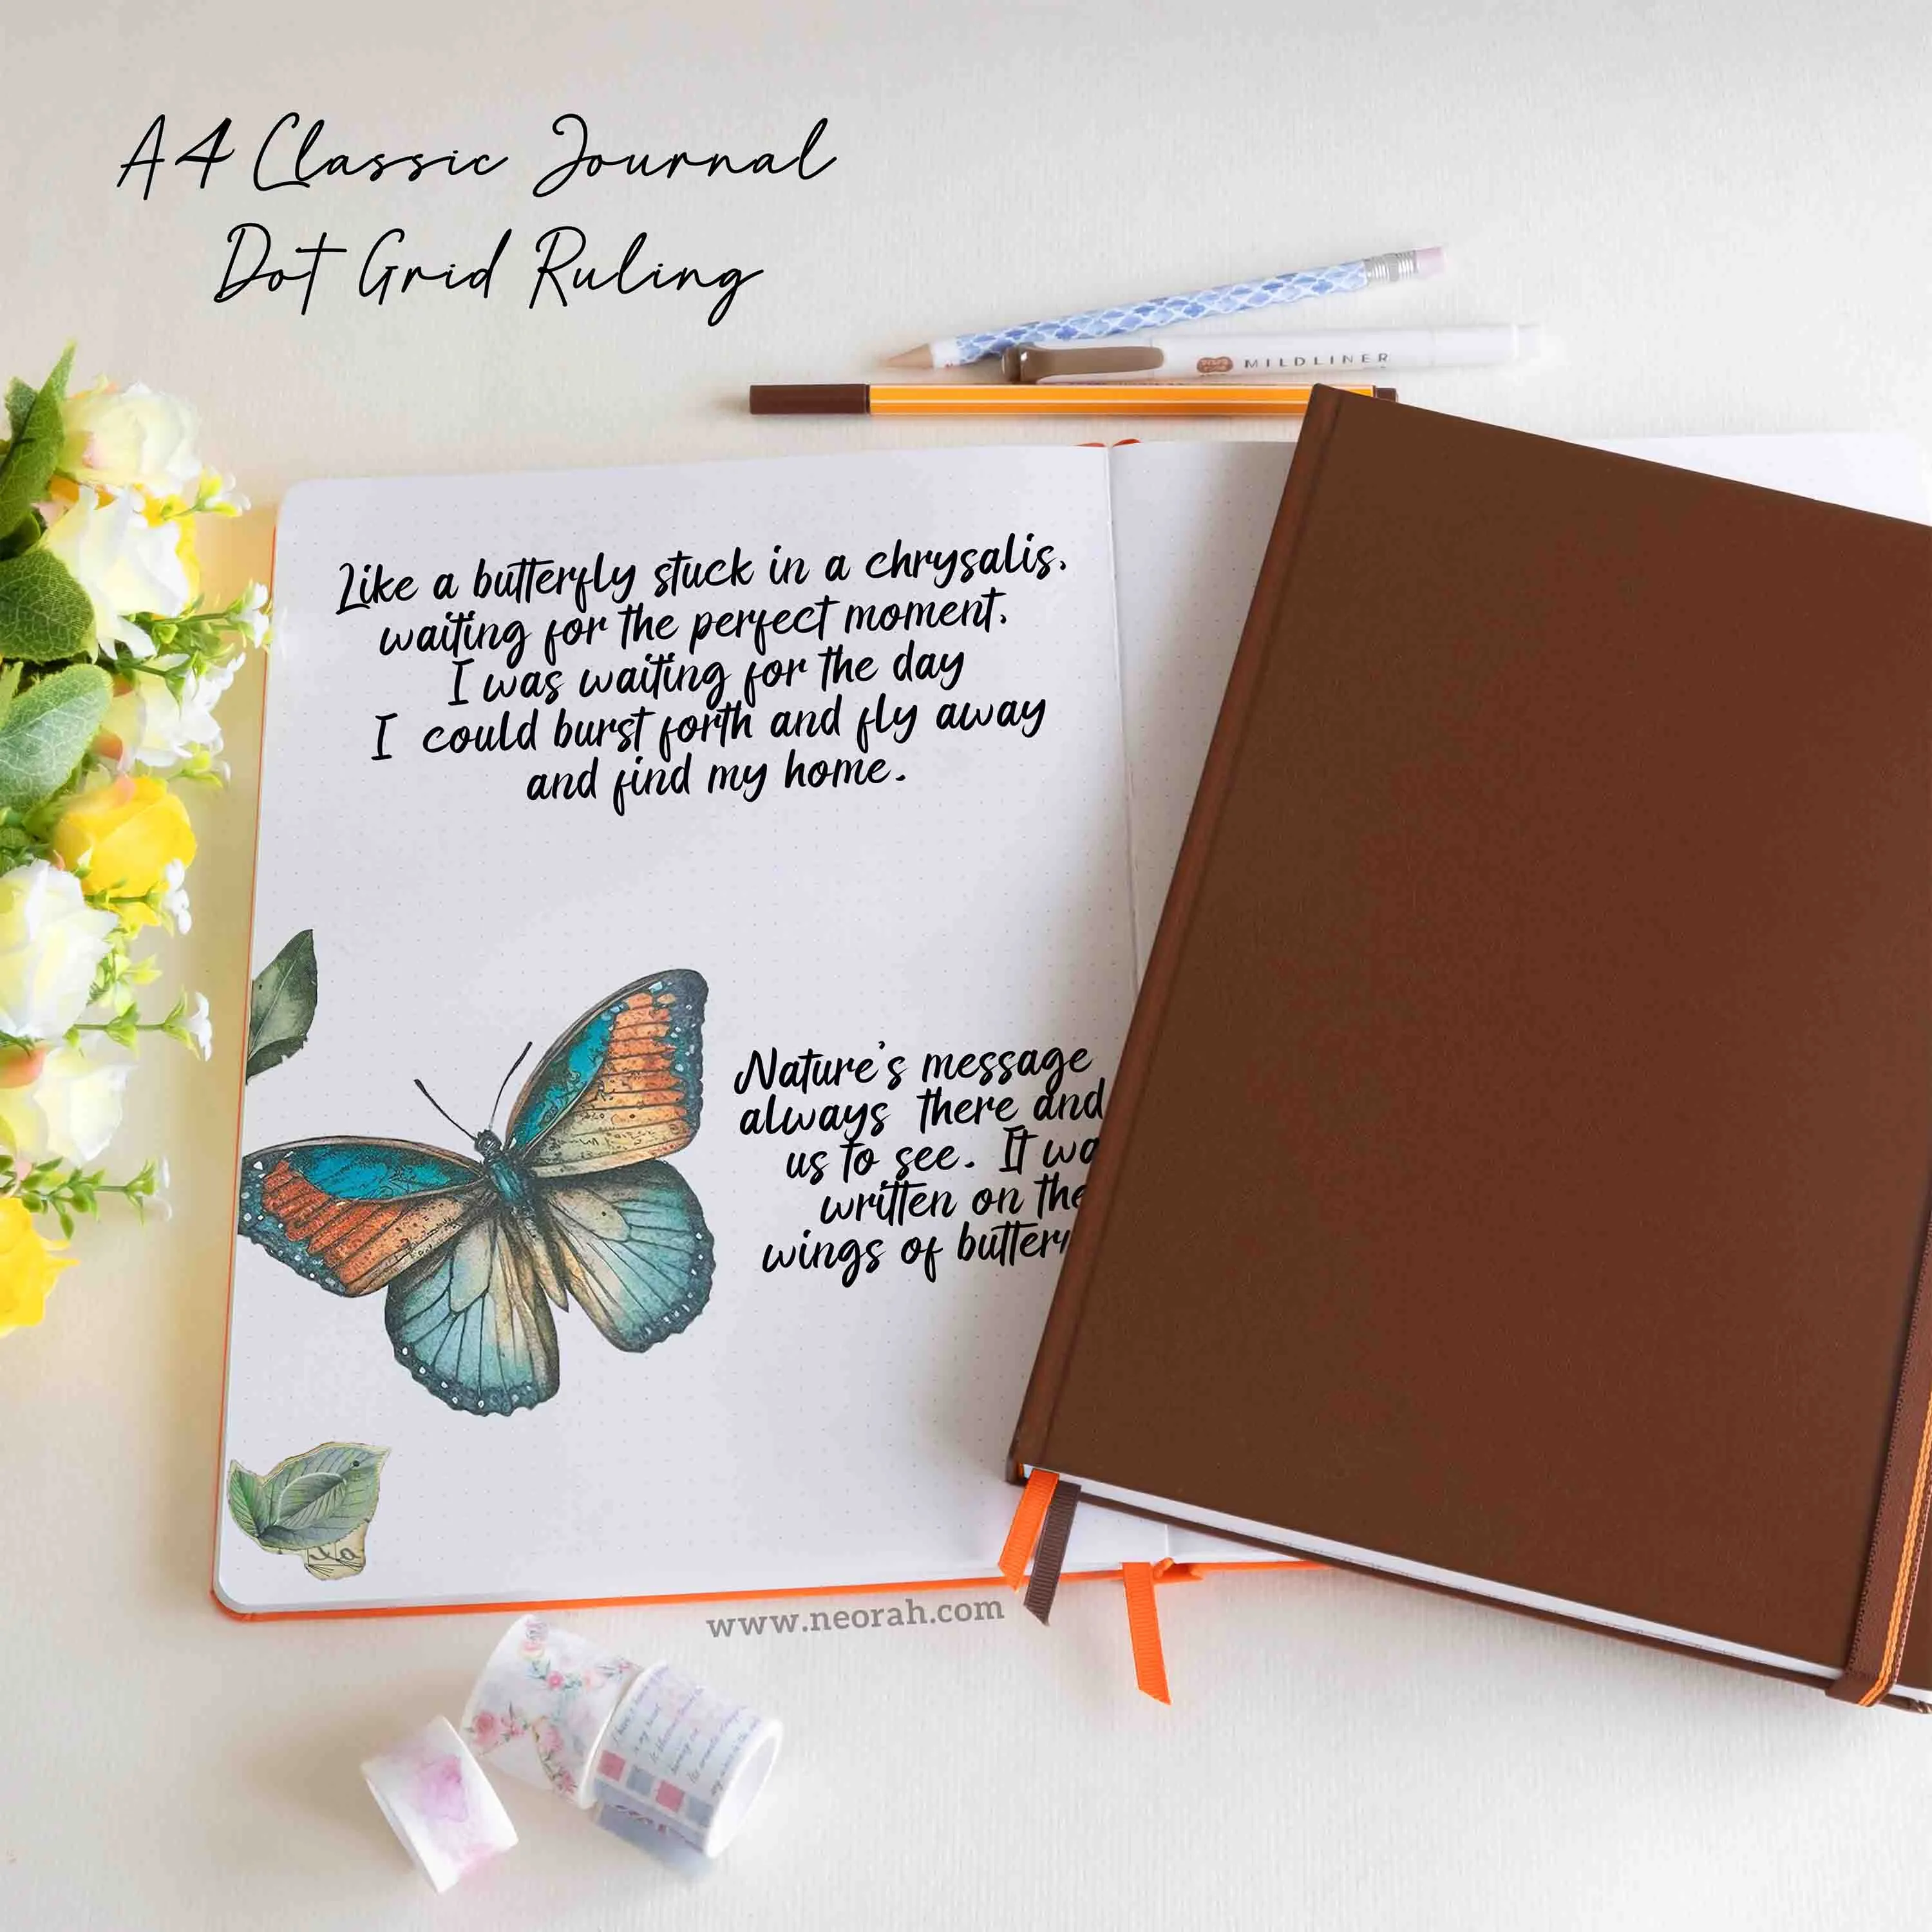 A4 Classic Journal
Dot Grid Ruling
MILDLINER
Like a butterfly stuck in a chrysalis,
waiting for the perfect moment,
I was waiting for the day
I could burst forth and fly away
and find my home.
Nature's message
always there and
us to see. It wa
written on the
wings of butter
www.neorah.com